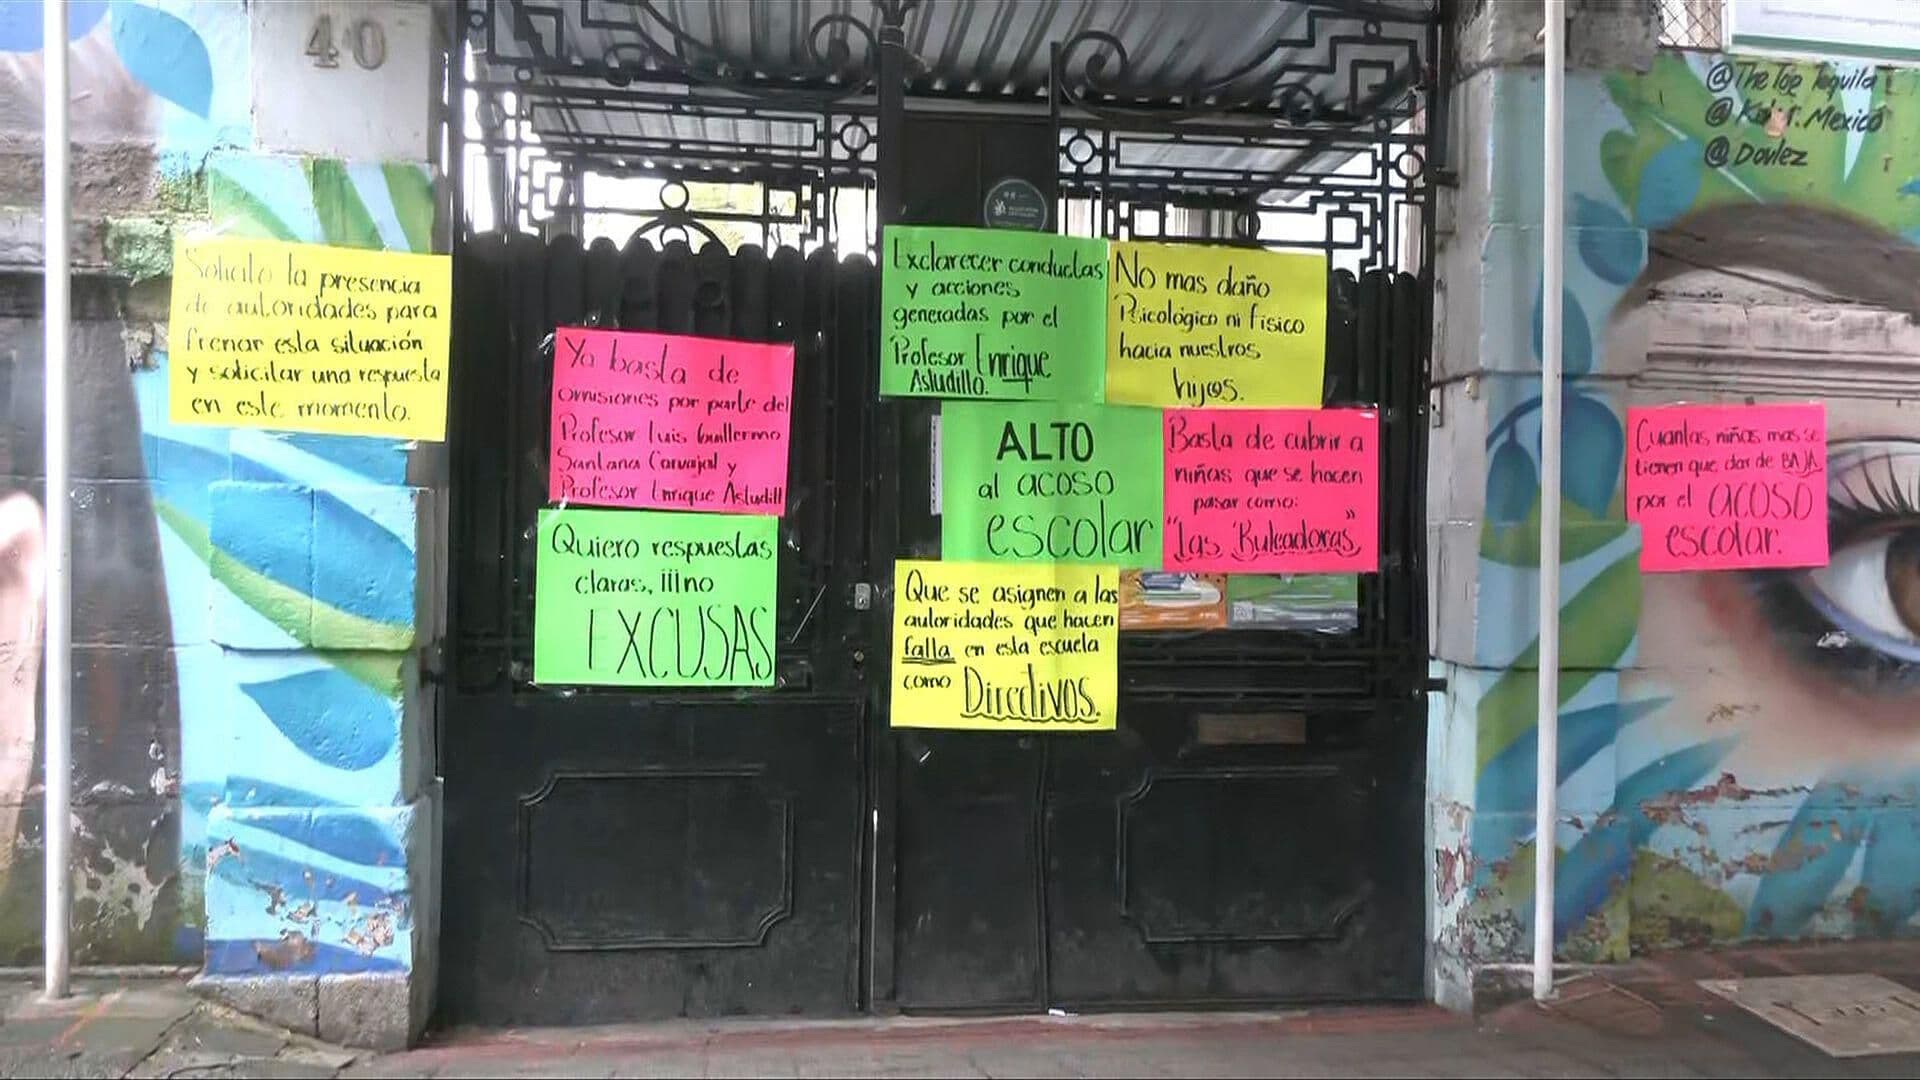 40
@The Top Tequila
@Doulez
Solicito la presencia
de autoridades para
frenar esta situación
y solicitar una respuesta
en este momento.
Ya basta de
omisiones por parte del
Profesor Luis Guillermo
Santana Carvajal y
Profesor Enrique Astudill
Quiero respuestas
claras, ¡¡¡no
EXCUSAS
Exclarecer conductas
y acciones
generadas por el
Profesor Enrique
Astudillo.
No mas daño
Psicológico ni fisico
hacia nuestros
hij@s.
ALTO
al acoso
escolar
Basta de cubrir a
niñas que se hacen
pasar como:
"Las Buleadoras"
Que se asignen a las
autoridades que hacen
falla en esta escuela
como Directivos.
Cuantas niñas mas se
tienen que dar de BAJA
por el ACOSO
escolar.